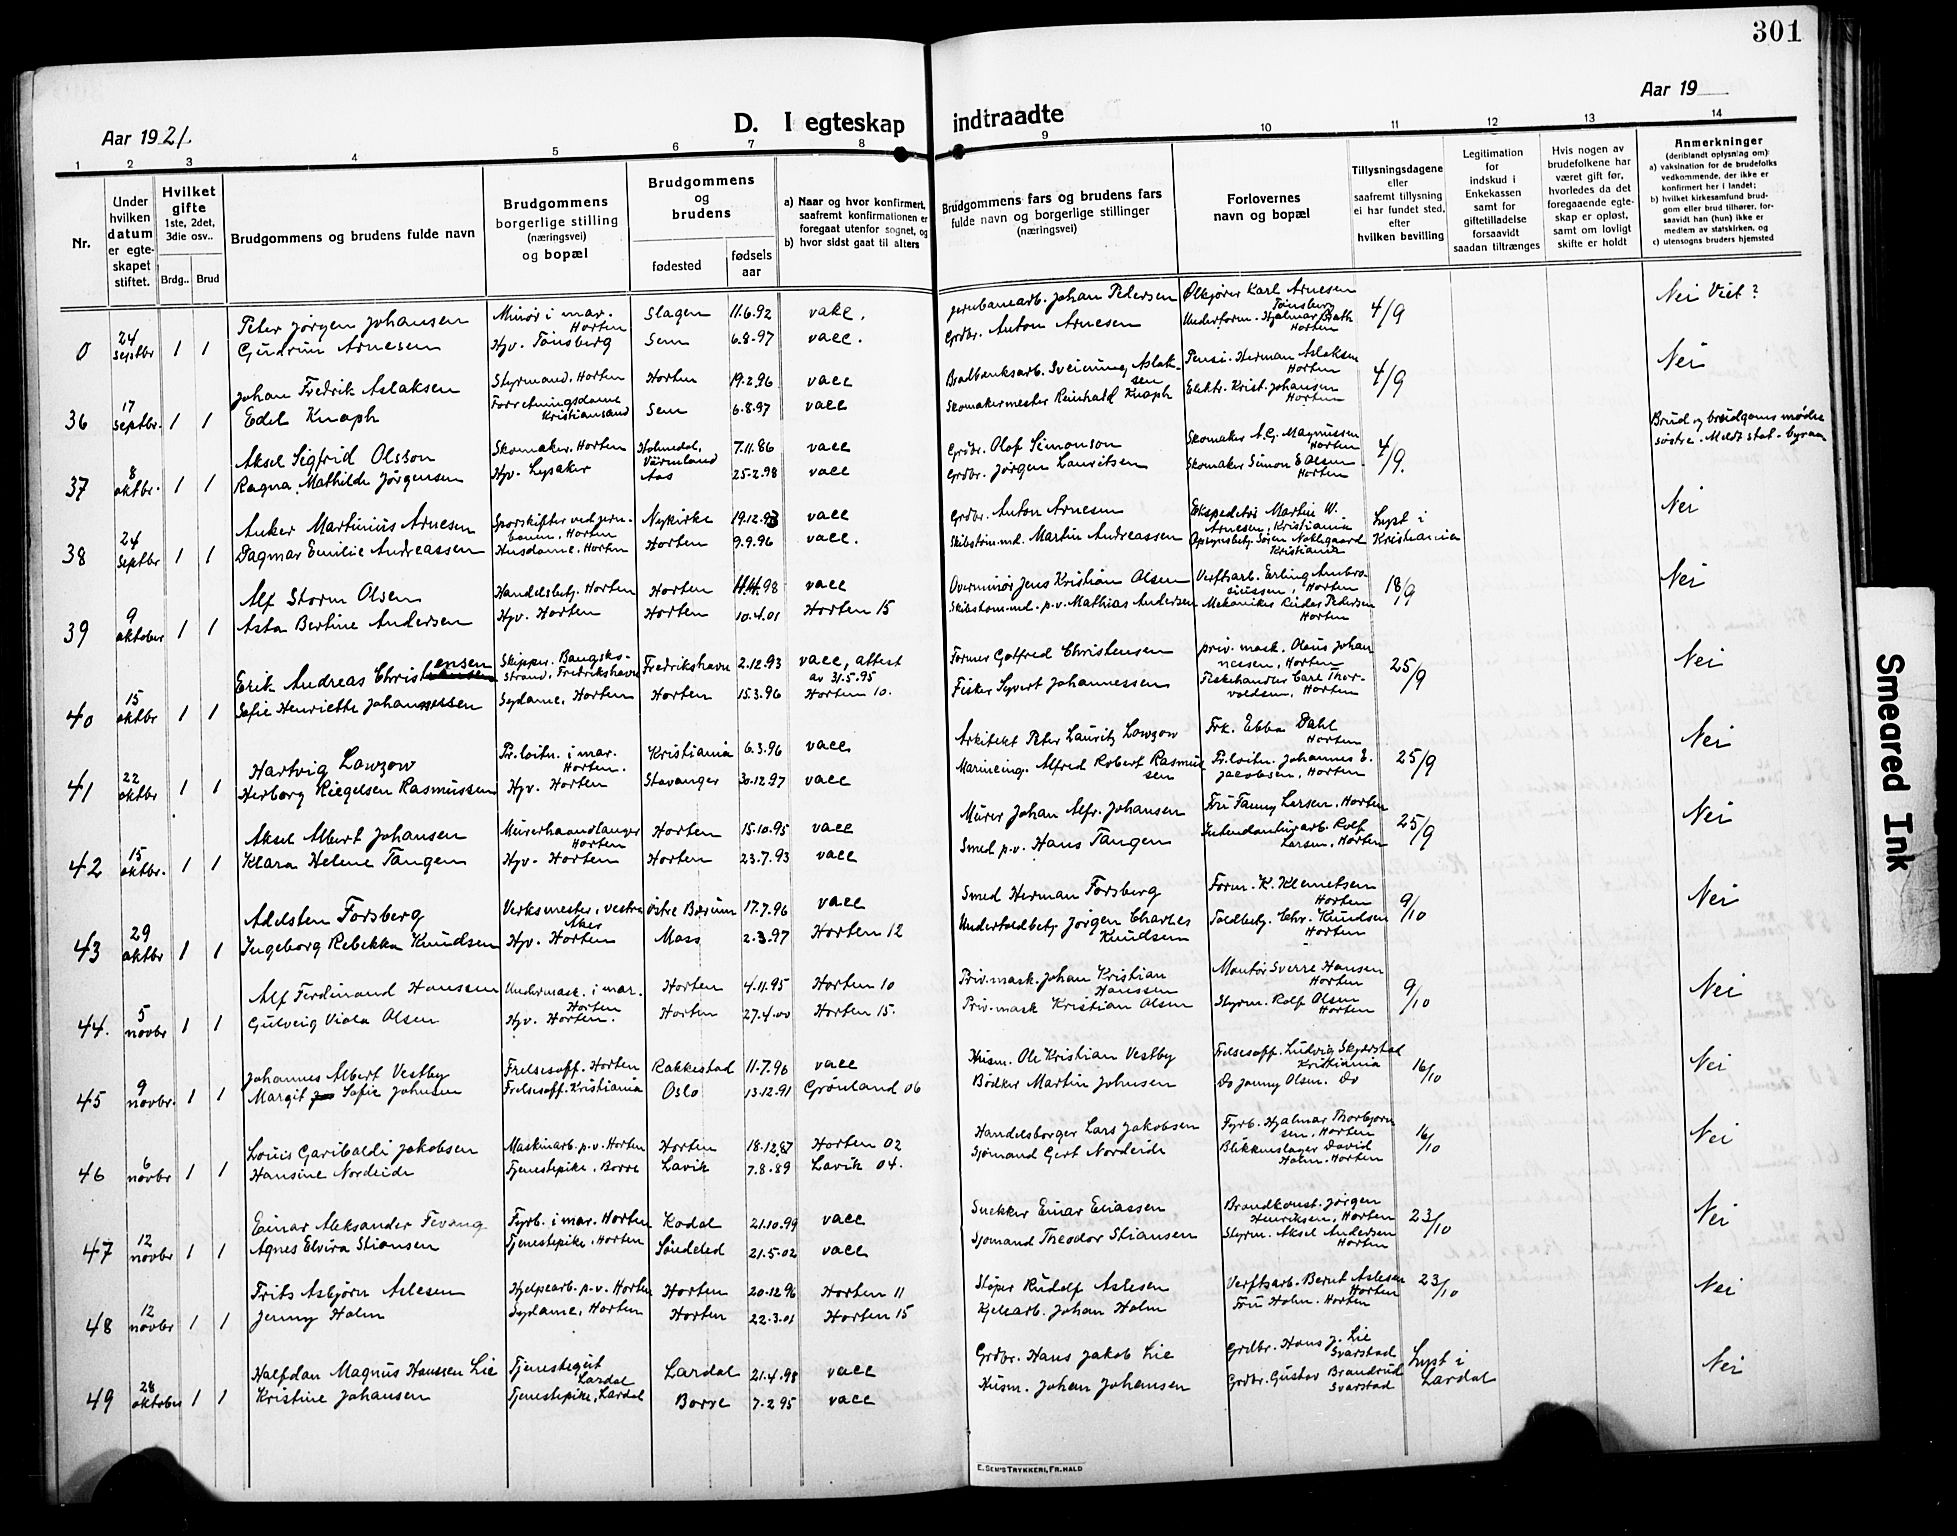 301
Aar 19
Aar 1921.
D. I egteskap indtraadte
1 2 3 4 5 6 7 8 9 10 11 12 13 14
Nr.
Under hvilken datum er egteskapet stiftet.
Hvilket gifte 1ste, 2det, 3die osv..
Brdg.. Brud
Brudgommens og brudens fulde navn
Brudgommens borgerlige stilling (næringsvei) og bopæl
Brudgommens og brudens
fødested
fødsels aar
a) Naar og hvor konfirmert, saafremt konfirmationen er foregaat utenfor sognet, og
b) hvor sidst gaat til alters
Brudgommens fars og brudens fars fulde navn og borgerlige stillinger (næringsvei)
Forlovernes navn og bopæl
Tillysningsdagene eller saafremt tillysning ei har fundet sted, efter hvilken bevilling
Legitimation for indskud i Enkekassen samt for giftetilladelse forsaavidt saadan tiltrænges
Hvis nogen av brudefolkene har været gift før, hvorledes da det foregaaende egteskap er opløst, samt om lovligt skifte er holdt
Anmerkninger
(deriblandt oplysning om):
a) vaksination for de brudefolks vedkommende, der ikke er konfirmert her i landet;
b) hvilket kirkesamfund brudgom eller brud tilhører, forsaavidt han (hun) ikke er medlem av statskirken, og
c) utensogns bruders hjemsted
0 24 septbr 1 1 Peter Jørgen Johansen Minør i mar. Horten Slagen 11.6.92 vakc. Jernbanearb. Johan Pedersen Ølkjører Karl Arnesen Tønsberg 4/9 Nei Viet?
Gudrun Arnesen Hjv. Tønsberg Sem 6.8.97 vacc. Grdbr. Anton Arnesen Underform. Hjalmar Bath Horten
36 17 septbr. 1 1 Johan Fredrik Aslaksen Styrmand, Horten Horten 19.2.96 vacc Sveinung Aslaksen Pensi. Herman Aslaksen Horten 4/9 Nei
Edel Knaph Forretningsdame Kristiansand Sem 6.8.97 vacc Skomakermester Reinhald Knaph Elektr. Krist. Johansen Horten
37 8 oktbr. 1 1 Aksel Sigfrid Olsson Skomaker, Horten Holmedal, Värmland 7.11.86 vacc Grdbr. Olof Simonson Skomaker A.G. Magnussen Horten 4/9. Brud og brudgoms mødre søstre. Meldt stat. byraa
Ragna Mathilde Jørgensen Hjv. Lysaker Aas 25-2.98 vacc Grdbr. Jørgen Lauritsen Skomaker Simon E Olsen Horten
38 24 septbr 1 1 Anker Martinius Arnesen Sporskifter ved jernbanen, Horten Nykirke 19.12.93 vacc Grdbr. Anton Arnesen Ekspeditri Martin W. Arnesen, Kristiania Lyst i Kristiania Nei
Dagmar Emilie Andreassen Husdame, Horten Horten 9.9.96 vacc. Skibstøm.md. Martin Andreassen Opsynsbetj. Søren Noklegaard Kristiania
39 9 oktober 1 1 Alf Storm Olsen Handelsbetj. Horten Horten 98 vacc Overminør Jens Kristian Olsen Verftsarb. Erling Ambrosiussen, Horten 18/9 Nei
Asta Bertine Andersen Hjv. Horten Horten 10.4.01 Horten 15 Skibstøm.md. p.v. Mathias Andersen Mekaniker Reidar Pedersen Horten
40 15 oktbr 1 1 Erik Andreas Christensen Skipper. Bangsbostrand, Fredrikshavn Fredrikshavn 2.12.93 vacc, attest av 31.5.95 Former Gotfred Christensen priv. mask. Olaus Johannessen, Horten 25/9 Nei
Sofie Henriette Johannessen Sydame, Horten Horten 15.3.96 Horten 10. Fisker Syvert Johannessen Fiskehandler Carl Thorvaldsen, Horten
41 22 oktbr 1 1 Hartvig Lowzow Pr. loitn. i mar. Horten. Kristiania 6.3.96 vacc Arkitekt Peter Lauritz Lowzow Frk. Ebba Dahl Horten 25/9 Nei
Herborg Riegelsen Rasmussen Hjv. Horten Stavanger 30.12.97 vacc Marineing. Alfred Robert Rasmussen Pr. loitn. Johannes E. Jacobsen, Horten
42 15 oktbr. 1 1 Aksel Albert Johansen Murerhaandlanger Horten Horten 15.10.95 vacc Murer Johan Alfr. Johansen Fru Fanny Larsen, Horten 25/9 Nei
Klara Helene Tangen Hjv. Horten Horten 23.7.93 vacc Smed p.v. Hans Tangen Intendanturarb. Rolf Larsen, Horten
43 29 oktbr 1 1 Adelsten Forsberg Verksmester, vestre Aker østre Bærum 17.7.96 vacc Smed Herman Forsberg Form. K. Klemetsen Horten 9/10 Nei
Ingeborg Rebekka Knudsen Hjv. Horten Moss 2.3.97 Horten 12 Undertoldbetj. Jørgen Charles Knudsen Toldbetj. Chr. Knudsen Horten
44. 5 novbr 1 1 Alf Ferdinand Hanssen Undermask. i mar. Horten Horten 4.11.95 Horten 10 Priv. mask. Johan Kristian Hanssen Montør Sverre Hansen Horten 9/10 Nei
Gulveig Viola Olsen Hjv. Horten. Horten 27.4.00 Horten 15. Priv. mask Kristian Olsen Styrm. Rolf Olsen Horten
45 9 novbr. 1 1 Johannes Albert Vestby Frelsesoff. Horten Rakkestad 11.7.96 vacc Husm. Ole Kristian Vestby Frelsesoff. Ludvig Skjærstad Kristiania 16/10 Nei
Margit Sofie Johnsen Frelsesoff. Kristiania Oslo 13.12.91 Grønland 06 Bødker Martin Johnsen Do Jenny Olsen. Do
46 6 novbr 1 1 Louis Garibaldi Jakobsen Maskinarb. p.v. Horten Horten 18.12.87 Horten 02 Handelsborger Lars Jakobsen Fyrb. Hjalmar Thorbjørnsen, Horten 16/10 Nei
Hansine Nordeide Tjenestepike, Borre Lavik 7.8.89 Lavik 04. Sjømand Gert Nordeide Blikkenslager David Holm. Horten
47 12 novbr 1 1 Einar Aleksander Fevang Fyrb. i mar. Horten Kodal 21.10.99 vacc Snekker Einar Eliassen Brandkonst. Jørgen Henriksen, Horten 23/10 Nei
Agnes Elvira Stiansen Tjenestepike, Horten Søndeled 21.5.02 vacc Sjømand Theodor Stiansen Styrm. Aksel Andersen Horten
48 12 novbr 1 1 Frits Asbjørn Aslesen Hjelpearb. p.v. Horten Horten 20.12.96 Horten 11 Støper Rudolf Aslesen Verftsarb. Bernt Aslesen Horten 23/10 Nei
Jenny Holm Sydame, Horten Horten 22.3.01 Horten 15 Kjelearb. Johan Holm Fru Holm. Horten
49 28 oktober 1 1 Halfdan Magnus Hanssen Lie Tjenestegut Lardal Lardal 21.4.98 vacc Grdbr. Hans Jakob Lie Grdbr. Hans J. Lie Svarstad Lyst i Lardal Nei
Kristine Johansen Tjenestepike, Lardal Borre 7.2.95 vacc Husm. Johan Johansen Grdbr. Gustav Brandrud Svarstad
E. SEM'S TRYKKERI, FR. HALD
Smeared Ink